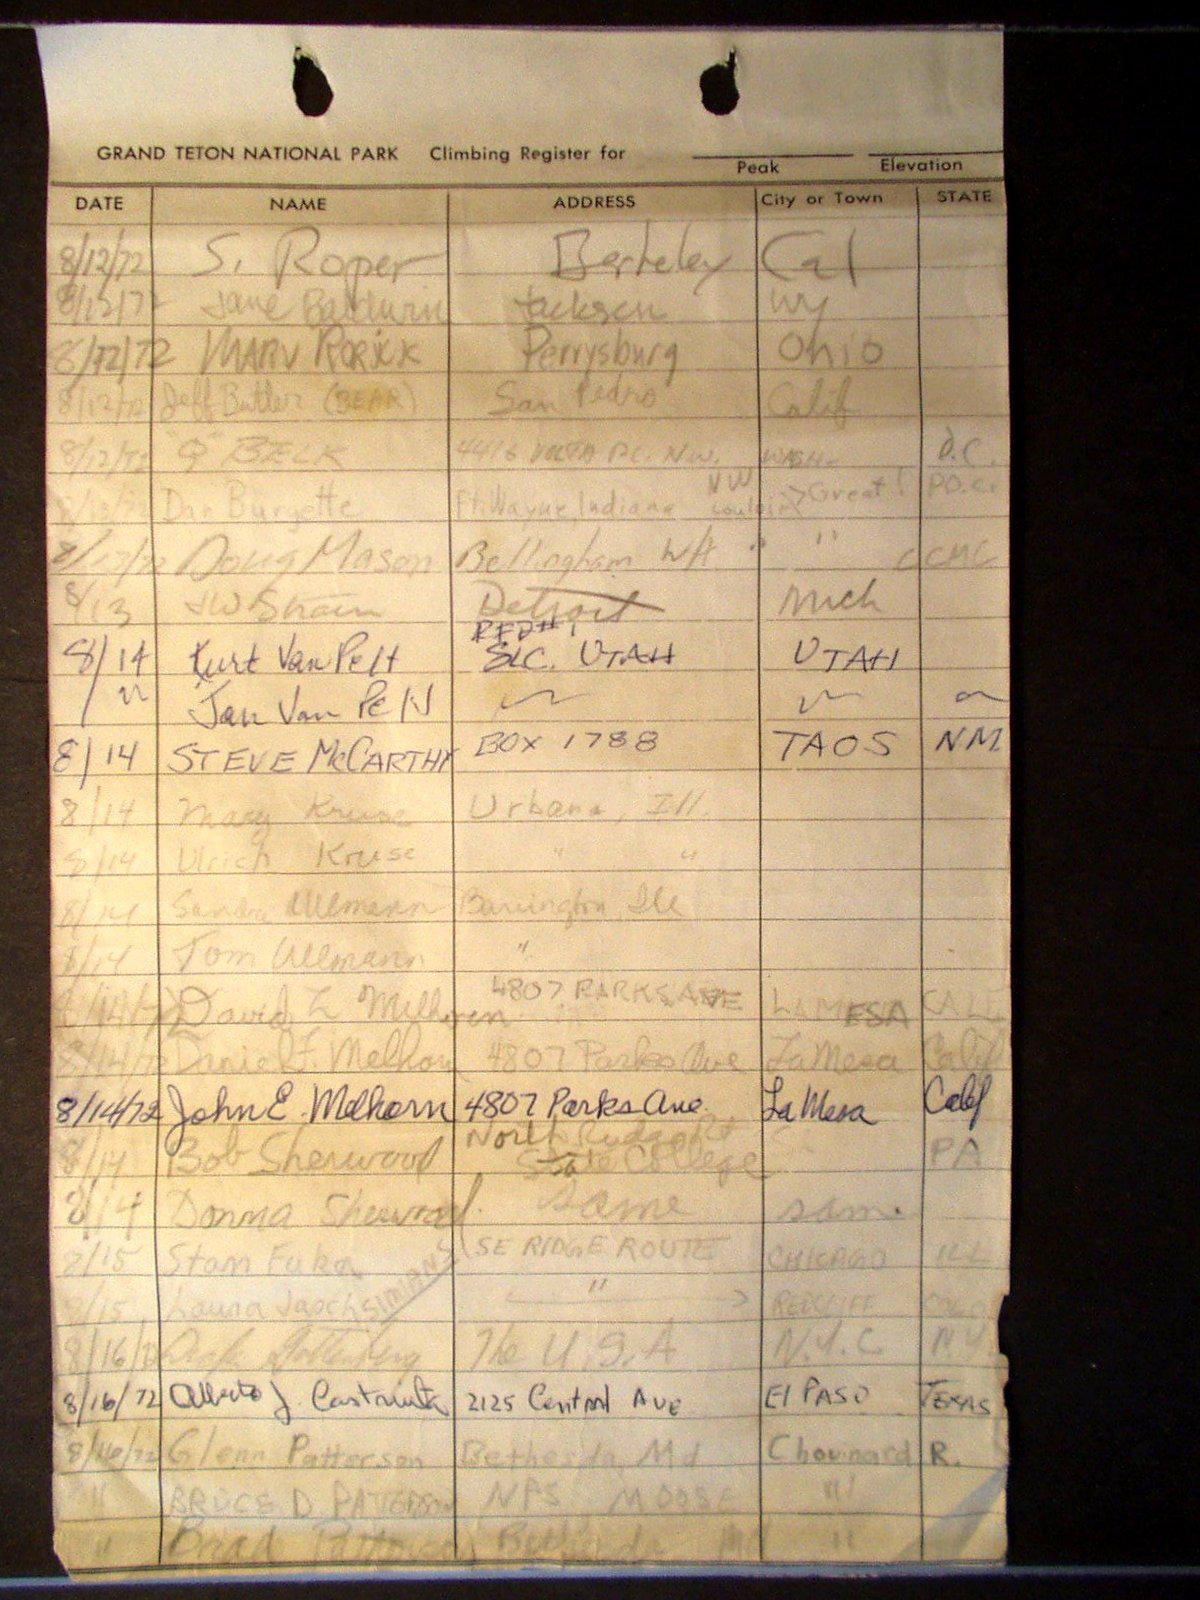 GRAND TETON NATIONAL PARK Climbing Register for
Peak Elevation
DATE NAME ADDRESS City or Town STATE
8/12/72 S. Roper Berkeley Cal
8/12/72 Jane Baldwin Jackson Wy
8/12/72 MARV RORICK Perrysburg Ohio
8/12/72 Jeff Butler (BEAR) San Pedro Calif
8/12/72 "Q" BELK 4416 VOLTA PL. N.W. WASH. D.C.
Dan Burgette Ft. Wayne, Indiana NW couloir > Great!
Doug Mason Bellingham WA " "
8/13 Detroit Mich
8/14 Kurt Van Pelt RFD #1 SLC. UTAH UTAH
" Jan Van Pelt
8/14 STEVE McCARTHY BOX 1788 TAOS NM
8/14 Mary Kruse Urbana, Ill.
8/14 Ulrich Kruse " "
8/14 Sandra Ullmann Barrington Ill
8/14 Tom Ullmann "
8/14/72 David L Melhorn 4807 PARKS AVE LA MESA CALIF
8/14/72 Daniel F. Melhorn 4807 Parks Ave La Mesa Calif
8/14/72 John E. Melhorn 4807 Parks Ave. La Mesa Calif
8/14 Bob Sherwood North State College PA
8/14 Donna Sherwood. Same same
8/15 Stan Fuka (SE RIDGE ROUTE CHICAGO ILL
8/15 Laura " REDCLIFF COLO
8/16/72 The U.S.A N.Y.C N.Y.
8/16/72 Alberto J. 2125 Central AVE El PASO TEXAS
8/16/72 Glenn Patterson Bethesda, Md Chouinard R.
" BRUCE D PATTERSON NPS MOOSE "
" Brad Patterson Bethesda Md "